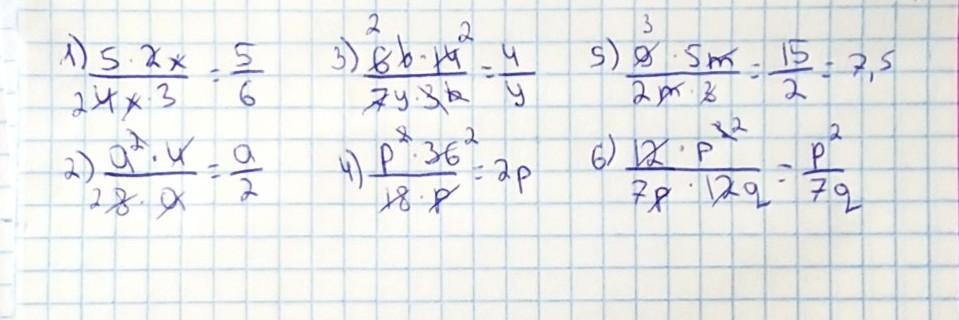 1) (5 · 2x) / (4x · 3) = 5/6
3) (6b · 14) / (7y · 3b) = 4/y
5) (9 · 5m) / (2m · 3) = 15/2 = 7,5
2) (a² · 4) / (8 · a) = a/2
4) (p² · 36) / (18 · p) = 2p
6) (12 · p³) / (7p · 12q) = p²/7q